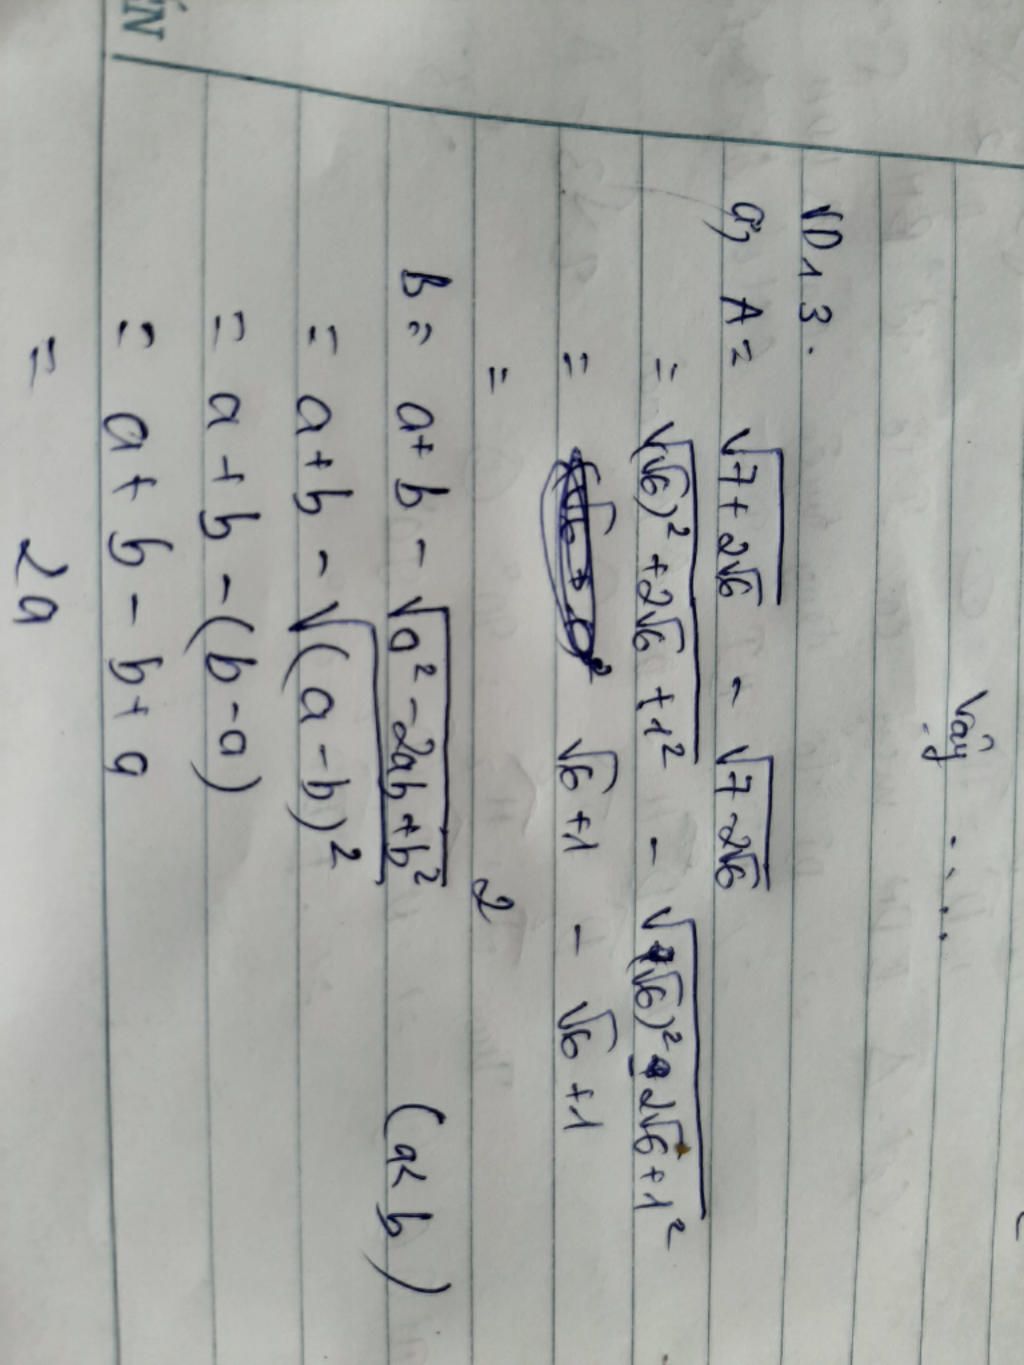 ÊN
Vậy ....
VD13.
a, A = √7+2√6 - √7-2√6
= √(√6)² + 2√6 + 1² - √(√6)² - 2√6 + 1²
= √6 + 1 - √6 + 1
= 2
B = a + b - √a² - 2ab + b² (a < b)
= a + b - √(a - b)²
= a + b - (b - a)
= a + b - b + a
= 2a